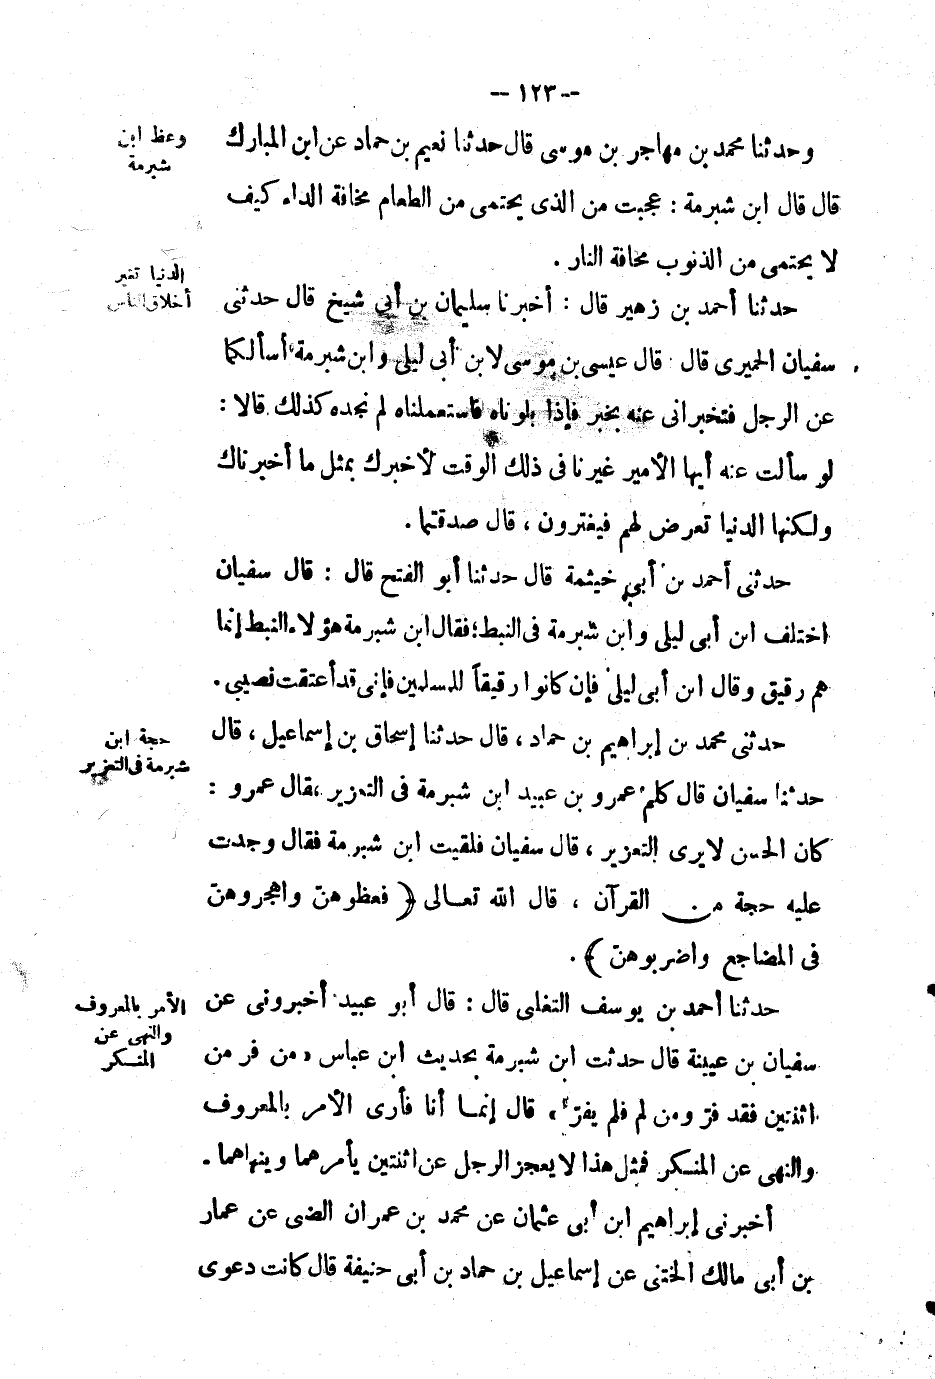 -- ١٢٣ --
وعظ ابن
شبرمة
وحدثنا محمد بن مهاجر بن موسى قال حدثنا نعيم بن حماد عن ابن المبارك
قال قال ابن شبرمة : عجبت من الذى يحتمى من الطعام مخافة الداء كيف
لا يحتمى من الذنوب مخافة النار .
الدنيا تغير
أخلاق الناس
حدثنا أحمد بن زهير قال : أخبرنا سليمان بن أبي شيخ قال حدثنى
سفيان الحميرى قال قال عيسى بن موسى لابن أبى ليلى وابن شبرمة أسألكما
عن الرجل فتخبرانى عنه بخبر فإذا بلوناه فاستعملناه لم نجده كذلك قالا :
لو سألت عنه أيها الأمير غيرنا فى ذلك الوقت لأخبرك بمثل ما أخبرناك
ولكنها الدنيا تعرض لهم فيغترون ، قال صدقتما .
حدثنى أحمد بن أبي خيثمة قال حدثنا أبو الفتح قال : قال سفيان
اختلف ابن أبى ليلى وابن شبرمة فى النبط؛ فقال ابن شبرمة هؤلاء النبط إنما
هم رقيق وقال ابن أبى ليلى فإن كانوا رقيقاً للمسلمين فإنى قد أعتقت نصيبى .
حجة ابن
شبرمة فى التعزير
حدثنى محمد بن إبراهيم بن حماد ، قال حدثنا إسحاق بن إسماعيل ، قال
حدثنا سفيان قال كلم عمرو بن عبيد ابن شبرمة فى التعزير ،قال عمرو :
كان الحسن لا يرى التعزير ، قال سفيان فلقيت ابن شبرمة فقال وجدت
عليه حجة من القرآن ، قال الله تعالى ﴿ فعظوهنّ واهجروهنّ
فى المضاجع واضربوهنّ ﴾ .
الأمر بالمعروف
والنهى عن
المنكر
حدثنا أحمد بن يوسف التغلبى قال : قال أبو عبيد أخبرونى عن
سفيان بن عيينة قال حدثت ابن شبرمة بحديث ابن عباس « من فر من
اثنتين فقد فرّ ومن لم فلم يفرّ » ، قال إنما أنا فأرى الأمر بالمعروف
والنهى عن المنكر فمثل هذا لا يعجز الرجل عن اثنتين يأمرهما وينهاهما .
أخبرنى إبراهيم ابن أبى عثمان عن محمد بن عمران الضبى عن عمار
بن أبى مالك الختنى عن إسماعيل بن حماد بن أبى حنيفة قال كانت دعوى